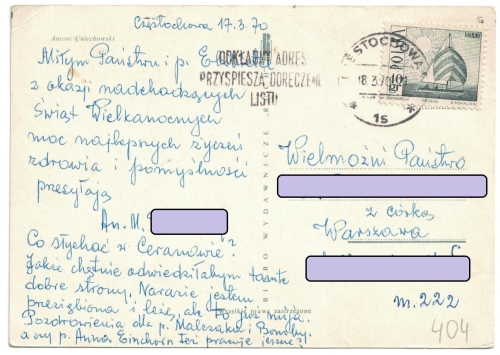 Częstochowa 17.3.70
Antoni Uniechowski
Miłym Państwu i p.
z okazji nadchodzących
Świąt Wielkanocnych
moc najlepszych życzeń
zdrowia i pomyślności
przesyłają
An. M.
Co słychać w Ceranowie?
Jakże chętnie odwiedziłabym tamte
dobre strony. Narazie jestem
przeziębiona i leżę, ale to już mija.
Pozdrowienia dla p. Malczaka i
a czy p. Anna Einchorn też pracuje jeszcze?
DOKŁADNY ADRES
PRZYSPIESZA DORĘCZENIE
LISTU
CZĘSTOCHOWA
18.3.70
1s
POLSKA
10 gr
BIURO WYDAWNICZE
Wszelkie prawa zastrzeżone
Wielmożni Państwo
z córką
Warszawa
m. 222
404